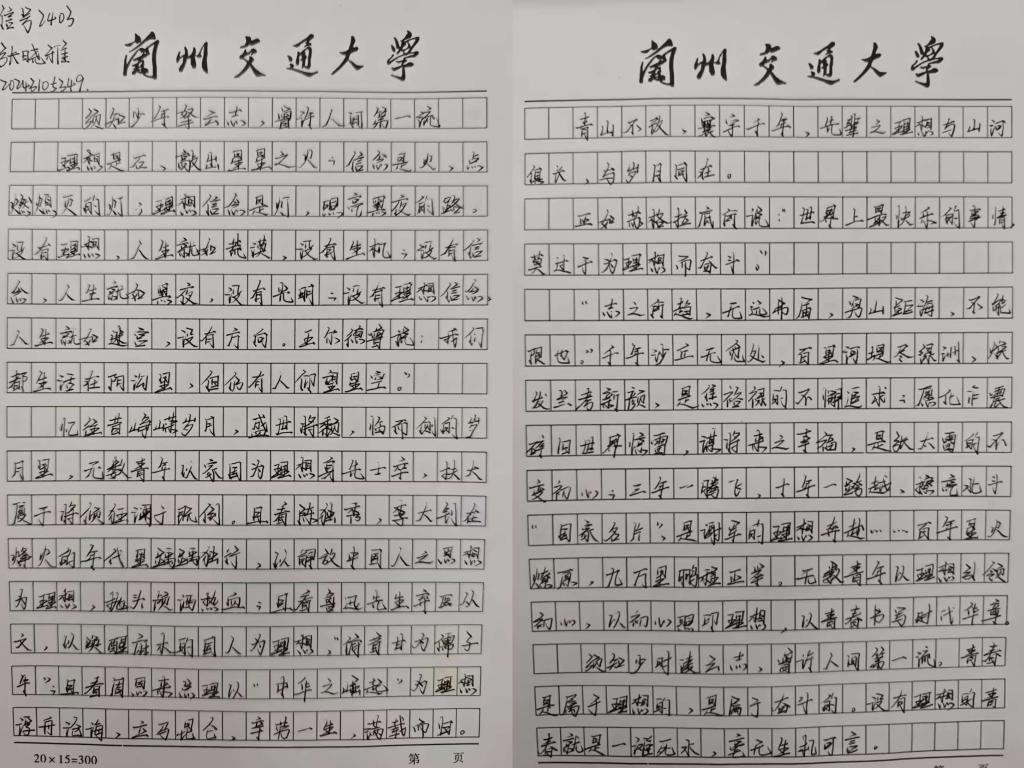 信号2403
张晓雅
20243105349.
兰州交通大学
须知少年拏云志，曾许人间第一流
理想是石，敲出星星之火；信念是火，点
燃熄灭的灯；理想信念是灯，照亮黑夜的路。
没有理想，人生就如荒漠，没有生机；没有信
念，人生就如黑夜，没有光明；没有理想信念，
人生就如迷宫，没有方向。王尔德曾说：我们
都生活在阴沟里，但仍有人仰望星空。”
忆往昔峥嵘岁月，盛世将颓，临而倒的岁
月里，无数青年以家国为理想身先士卒，扶大
厦于将倾狂澜于既倒。且看陈独秀，李大钊在
烽火的年代里踽踽独行，以解放中国人之思想
为理想，抛头颅洒热血；且看鲁迅先生弃医从
文，以唤醒麻木的国人为理想，“俯首甘为孺子
牛”；且看周恩来总理以“中华之崛起”为理想
浮舟沧海，立马昆仑，辛劳一生，满载而归。
20×15=300
第 页
兰州交通大学
青山不改、寰宇千年，先辈之理想与山河
俱长，与岁月同在。
正如苏格拉底所说：“世界上最快乐的事情，
莫过于为理想而奋斗。”
“志之所趋，无远弗届，穷山距海，不能
限也。”千年沙丘无觅处，百里河堤尽绿洲，焕
发兰考新颜，是焦裕禄的不懈追求；愿化作震
碎旧世界惊雷，谋将来之幸福，是狄太雷的不
变初心；三年一腾飞，十年一跨越、擦亮北斗
“国家名片”，是谢军的理想奔赴……百年星火
燎原，九万里鹏程正举。无数青年以理想引领
初心，以初心照印理想，以青春书写时代华章。
须知少时凌云志，曾许人间第一流。青春
是属于理想的，是属于奋斗的。没有理想的青
春就是一滩死水，毫无生机可言。
第 页